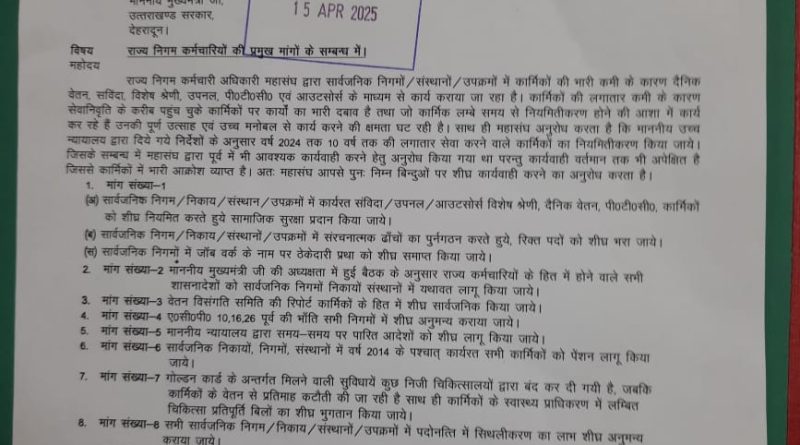 माननीय मुख्यमंत्री जी,
उत्तराखण्ड सरकार,
देहरादून।
15 APR 2025
विषय राज्य निगम कर्मचारियों की प्रमुख मांगों के सम्बन्ध में।
महोदय
राज्य निगम कर्मचारी अधिकारी महासंघ द्वारा सार्वजनिक निगमों/संस्थानों/उपक्रमों में कार्मिकों की भारी कमी के कारण दैनिक
वेतन, सविंदा, विशेष श्रेणी, उपनल, पी०टी०सी० एवं आउटसोर्स के माध्यम से कार्य कराया जा रहा है। कार्मिकों की लगातार कमी के कारण
सेवानिवृति के करीब पहुंच चुके कार्मिकों पर कार्यो का भारी दबाव है तथा जो कार्मिक लम्बे समय से नियमितीकरण होने की आशा में कार्य
कर रहे हैं उनकी पूर्ण उत्साह एवं उच्च मनोबल से कार्य करने की क्षमता घट रही है। साथ ही महासंघ अनुरोध करता है कि माननीय उच्च
न्यायालय द्वारा दिये गये निर्देशों के अनुसार वर्ष 2024 तक 10 वर्ष तक की लगातार सेवा करने वाले कार्मिकों का नियमितिकरण किया जाये।
जिसके सम्बन्ध में महासंघ द्वारा पूर्व में भी आवश्यक कार्यवाही करने हेतु अनुरोध किया गया था परन्तु कार्यवाही वर्तमान तक भी अपेक्षित है
जिससे कार्मिकों में भारी आक्रोश व्याप्त है। अतः महासंघ आपसे पुनः निम्न बिन्दुओं पर शीघ्र कार्यवाही करने का अनुरोध करता है।
1. मांग संख्या–1
(अ) सार्वजनिक निगम/निकाय/संस्थान/उपक्रमों में कार्यरत संविदा/उपनल/आउटसोर्स विशेष श्रेणी, दैनिक वेतन, पी०टी०सी०, कार्मिकों
को शीघ्र नियमित करते हुये सामाजिक सुरक्षा प्रदान किया जाये।
(ब) सार्वजनिक निगम/निकाय/संस्थानों/उपक्रमों में संरचनात्मक ढाँचों का पुर्नगठन करते हुये, रिक्त पदों को शीघ्र भरा जाये।
(स) सार्वजनिक निगमों में जॉब वर्क के नाम पर ठेकेदारी प्रथा को शीघ्र समाप्त किया जाये।
2. मांग संख्या–2 माननीय मुख्यमंत्री जी की अध्यक्षता में हुई बैठक के अनुसार राज्य कर्मचारियों के हित में होने वाले सभी
शासनादेशों को सार्वजनिक निगमों निकायों संस्थानों में यथावत लागू किया जाये।
3. मांग संख्या–3 वेतन विसंगति समिति की रिपोर्ट कार्मिकों के हित में शीघ्र सार्वजनिक किया जाये।
4. मांग संख्या–4 ए०सी०पी० 10,16,26 पूर्व की भाँति सभी निगमों में शीघ्र अनुमन्य कराया जाये।
5. मांग संख्या–5 माननीय न्यायालय द्वारा समय–समय पर पारित आदेशों को शीघ्र लागू किया जाये।
6. मांग संख्या–6 सार्वजनिक निकायों, निगमों, संस्थानों में वर्ष 2014 के पश्चात् कार्यरत सभी कार्मिकों को पेंशन लागू किया
जाये।
7. मांग संख्या–7 गोल्डन कार्ड के अन्तर्गत मिलने वाली सुविधायें कुछ निजी चिकित्सालयों द्वारा बंद कर दी गयी है, जबकि
कार्मिकों के वेतन से प्रतिमाह कटौती की जा रही है साथ ही कार्मिकों के स्वास्थ्य प्राधिकरण में लम्बित
चिकित्सा प्रतिपूर्ति बिलों का शीघ्र भुगतान किया जाये।
8. मांग संख्या–8 सभी सार्वजनिक निगम/निकाय/संस्थानों/उपक्रमों में पदोनत्ति में सिथलीकरण का लाभ शीघ्र अनुमन्य
कराया जाये।